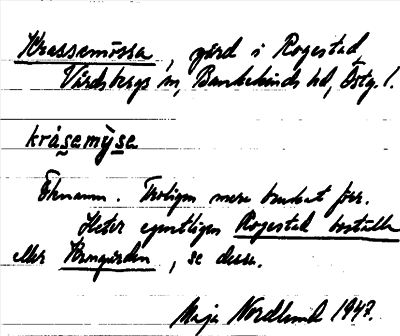 Krassemössa, gård i Rogestad,
Vårdsbergs sn, Bankekinds hd, Östg. l.
kråsemỳse
Öknamn. Troligen mera brukat förr.
Heter egentligen Rogestad boställe
eller Norrgården, se dessa.
Maja Nordlund 1947.